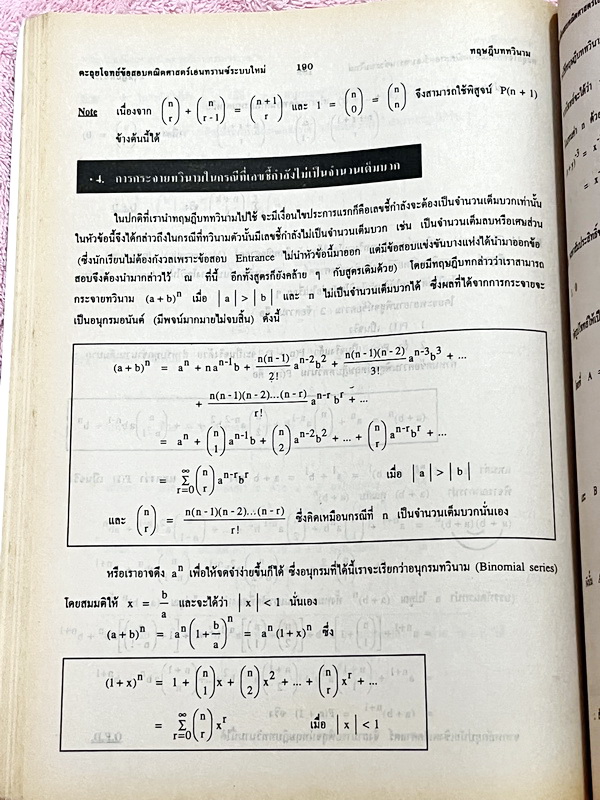 ทฤษฎีบททวินาม
ตะลุยโจทย์ข้อสอบคณิตศาสตร์เอนทรานซ์ระบบใหม่ 190
Note เนื่องจาก (n r) + (n r-1) = (n+1 r) และ 1 = (n 0) = (n n) จึงสามารถใช้พิสูจน์ P(n + 1)
ข้างต้นนี้ได้
·4. การกระจายทวินามในกรณีที่เลขชี้กำลังไม่เป็นจำนวนเต็มบวก
ในปกติที่เรานำทฤษฎีบททวินามไปใช้ จะมีเงื่อนไขประการแรกก็คือเลขชี้กำลังจะต้องเป็นจำนวนเต็มบวกเท่านั้น
ในหัวข้อนี้จึงได้กล่าวถึงในกรณีที่ทวินามตัวนั้นมีเลขชี้กำลังไม่เป็นจำนวนเต็มบวก เช่น เป็นจำนวนเต็มลบหรือเศษส่วน
(ซึ่งนักเรียนไม่ต้องกังวลเพราะข้อสอบ Entrance ไม่นำหัวข้อนี้มาออก แต่มีข้อสอบแข่งขันบางแห่งได้นำมาออกข้อ
สอบจึงต้องนำมากล่าวไว้ ณ ที่นี้ อีกทั้งสูตรก็ยังคล้าย ๆ กับสูตรเดิมด้วย) โดยมีทฤษฎีบทกล่าวว่าเราสามารถ
กระจายทวินาม (a + b)ⁿ เมื่อ | a | > | b | และ n ไม่เป็นจำนวนเต็มบวกได้ ซึ่งผลที่ได้จากการกระจายจะ
เป็นอนุกรมอนันต์ (มีพจน์มากมายไม่จบสิ้น) ดังนี้
(a + b)ⁿ = aⁿ + naⁿ⁻¹b + n(n-1)/2! aⁿ⁻²b² + n(n-1)(n-2)/3! aⁿ⁻³b³ + ...
+ n(n-1)(n-2)...(n-r)/r! aⁿ⁻ʳbʳ + ...
= aⁿ + (n 1)aⁿ⁻¹b + (n 2)aⁿ⁻²b² + ... + (n r)aⁿ⁻ʳbʳ + ...
= ∞ Σ r=0 (n r) aⁿ⁻ʳbʳ เมื่อ | a | > | b |
และ (n r) = n(n-1)(n-2)...(n-r)/r! ซึ่งคิดเหมือนกรณีที่ n เป็นจำนวนเต็มบวกนั่นเอง
หรือเราอาจดึง aⁿ เพื่อให้จดจำง่ายขึ้นก็ได้ ซึ่งอนุกรมที่ได้นี้เราจะเรียกว่าอนุกรมทวินาม (Binomial series)
โดยสมมติให้ x = b/a และจะได้ว่า | x | < 1 นั่นเอง
(a + b)ⁿ = aⁿ(1 + b/a)ⁿ = aⁿ(1 + x)ⁿ ซึ่ง
(1 + x)ⁿ = 1 + (n 1)x + (n 2)x² + ... + (n r)xʳ + ...
= ∞ Σ r=0 (n r) xʳ เมื่อ | x | < 1